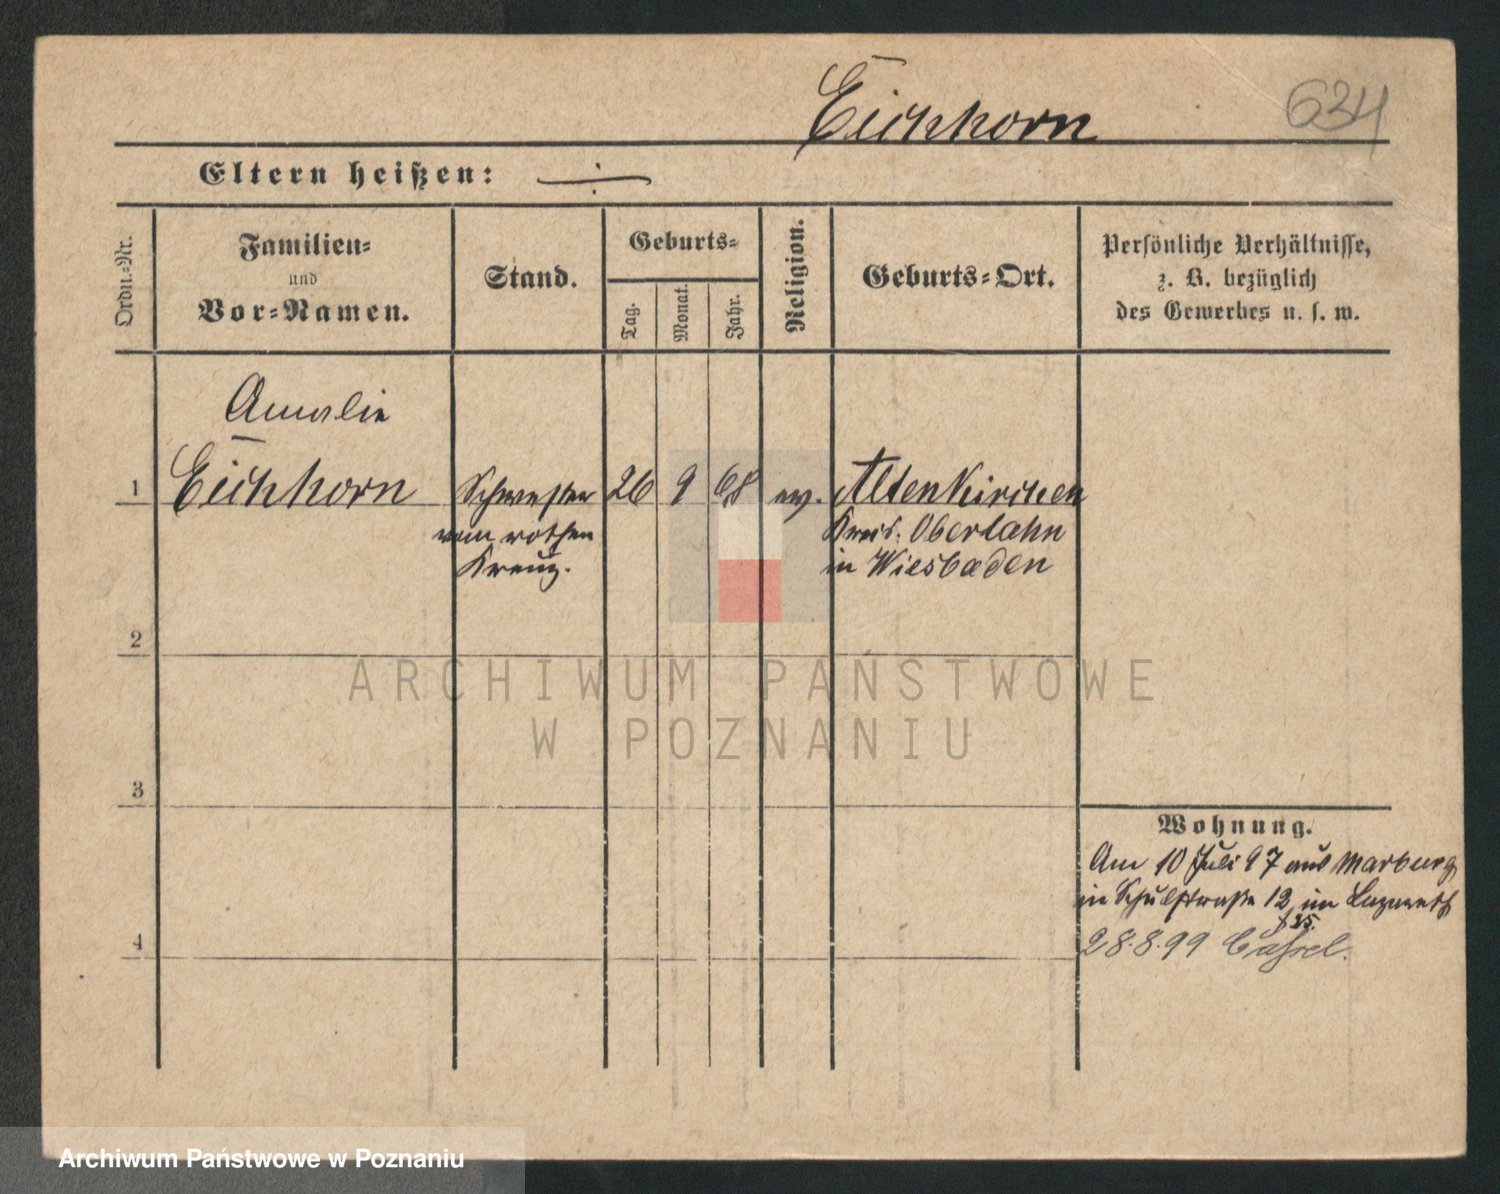 Eichhorn
634
Eltern heißen: ÷
Ordn.-Nr.
Familien-
und
Vor-Namen.
Stand.
Geburts-
Tag.
Monat.
Jahr.
Religion.
Geburts-Ort.
Persönliche Verhältnisse,
z. B. bezüglich
des Gewerbes u. s. w.
Amalie
1 Eichhorn Schwester 26 9 68 ev. Altenkirchen
vom rothen Kreis. Oberlahn
Kreuz. in Wiesbaden
2
3
4
Wohnung.
Am 10 Juli 97 aus Marburg
in Schulstraße 12 im Lazareth
28.8.99 Cassel.
ARCHIWUM PAŃSTWOWE
W POZNANIU
Archiwum Państwowe w Poznaniu